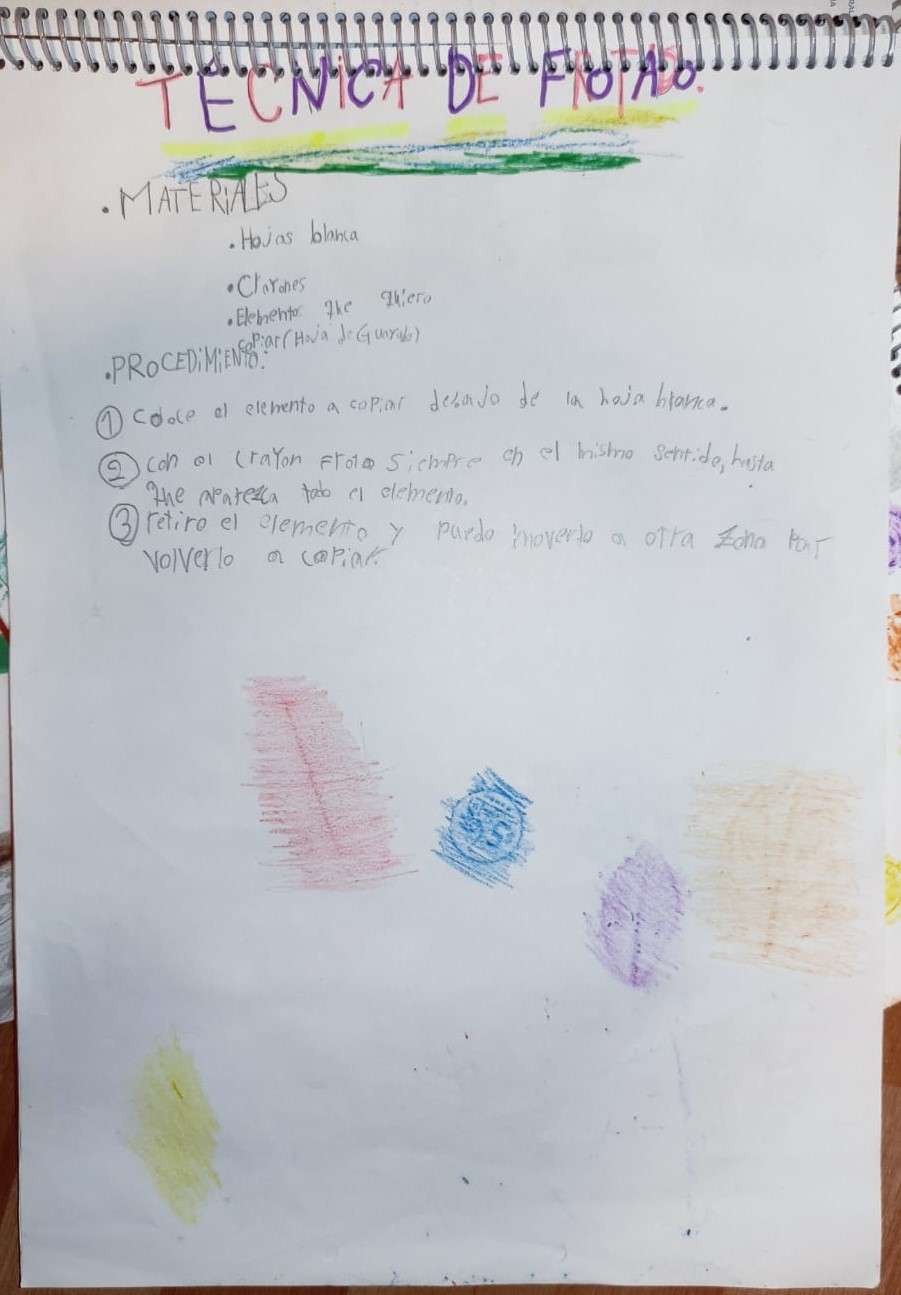 TÉCNICA DE FROTADO.
. MATERIALES
. Hojas blanca
. Crayones
. Elemento que quiero
copiar (Hoja de Guarubo)
. PROCEDIMIENTO:
① Coloco el elemento a copiar debajo de la hoja blanca.
② con el crayon Froto siempre en el mismo sentido, hasta
que aparezca todo el elemento.
③ retiro el elemento y puedo moverlo a otra zona Par
volverlo a copiar.